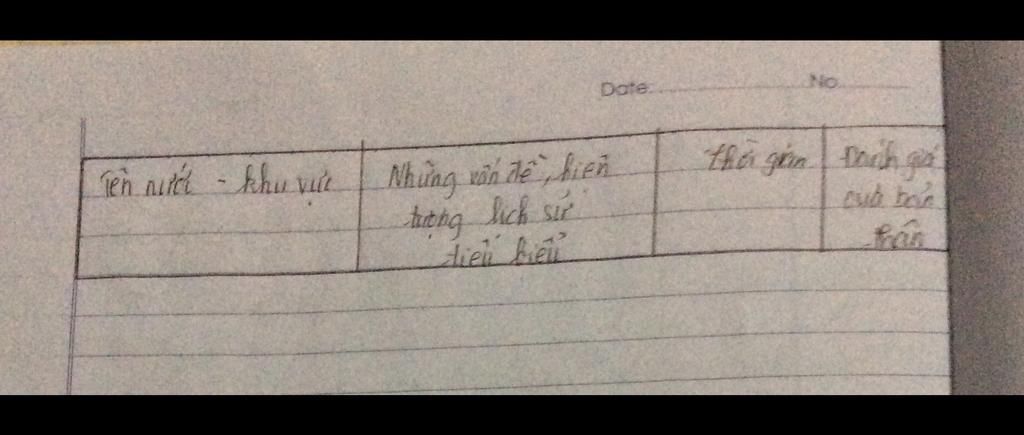 Date: No
Tên nước - khu vực
Những vấn đề, hiện
tượng lịch sử
tiêu biểu
thời gian
Đánh giá
của bản
thân